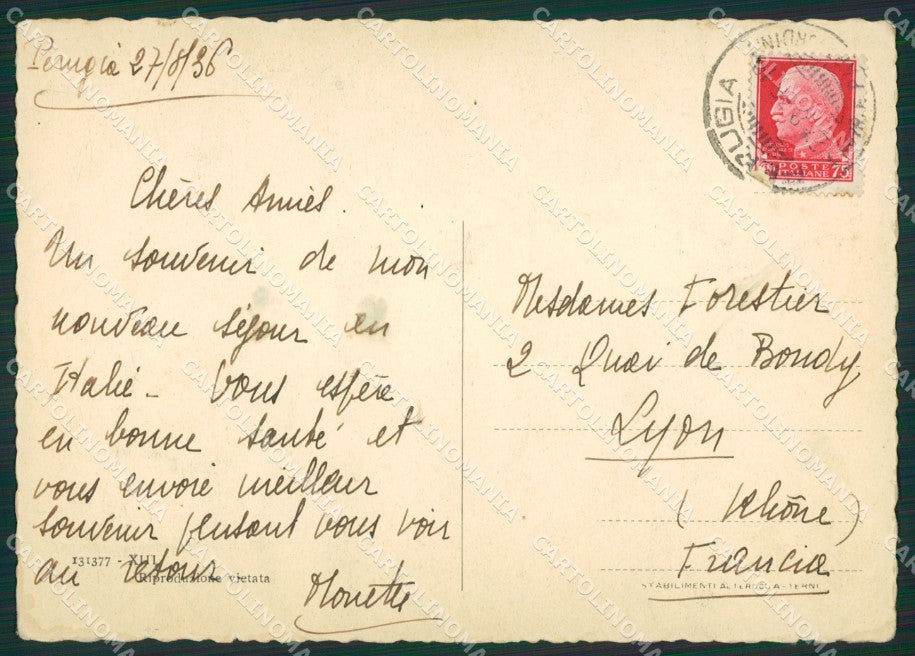 Perugia 27/8/36
Chères Amies.
Un souvenir de mon
nouveau séjour en
Italie - Vous espère
en bonne santé et
vous envoie meilleur
souvenir pensant vous voir
au retour
131377 - XIII
Riproduzione vietata
RUGIA
POSTE
ITALIANE 75
Mesdames Forestier
2 Quai de Bondy
Lyon
(Rhône)
Francia
STABILIMENTI ALTEROCCA-TERNI
CARTOLINOMANIA